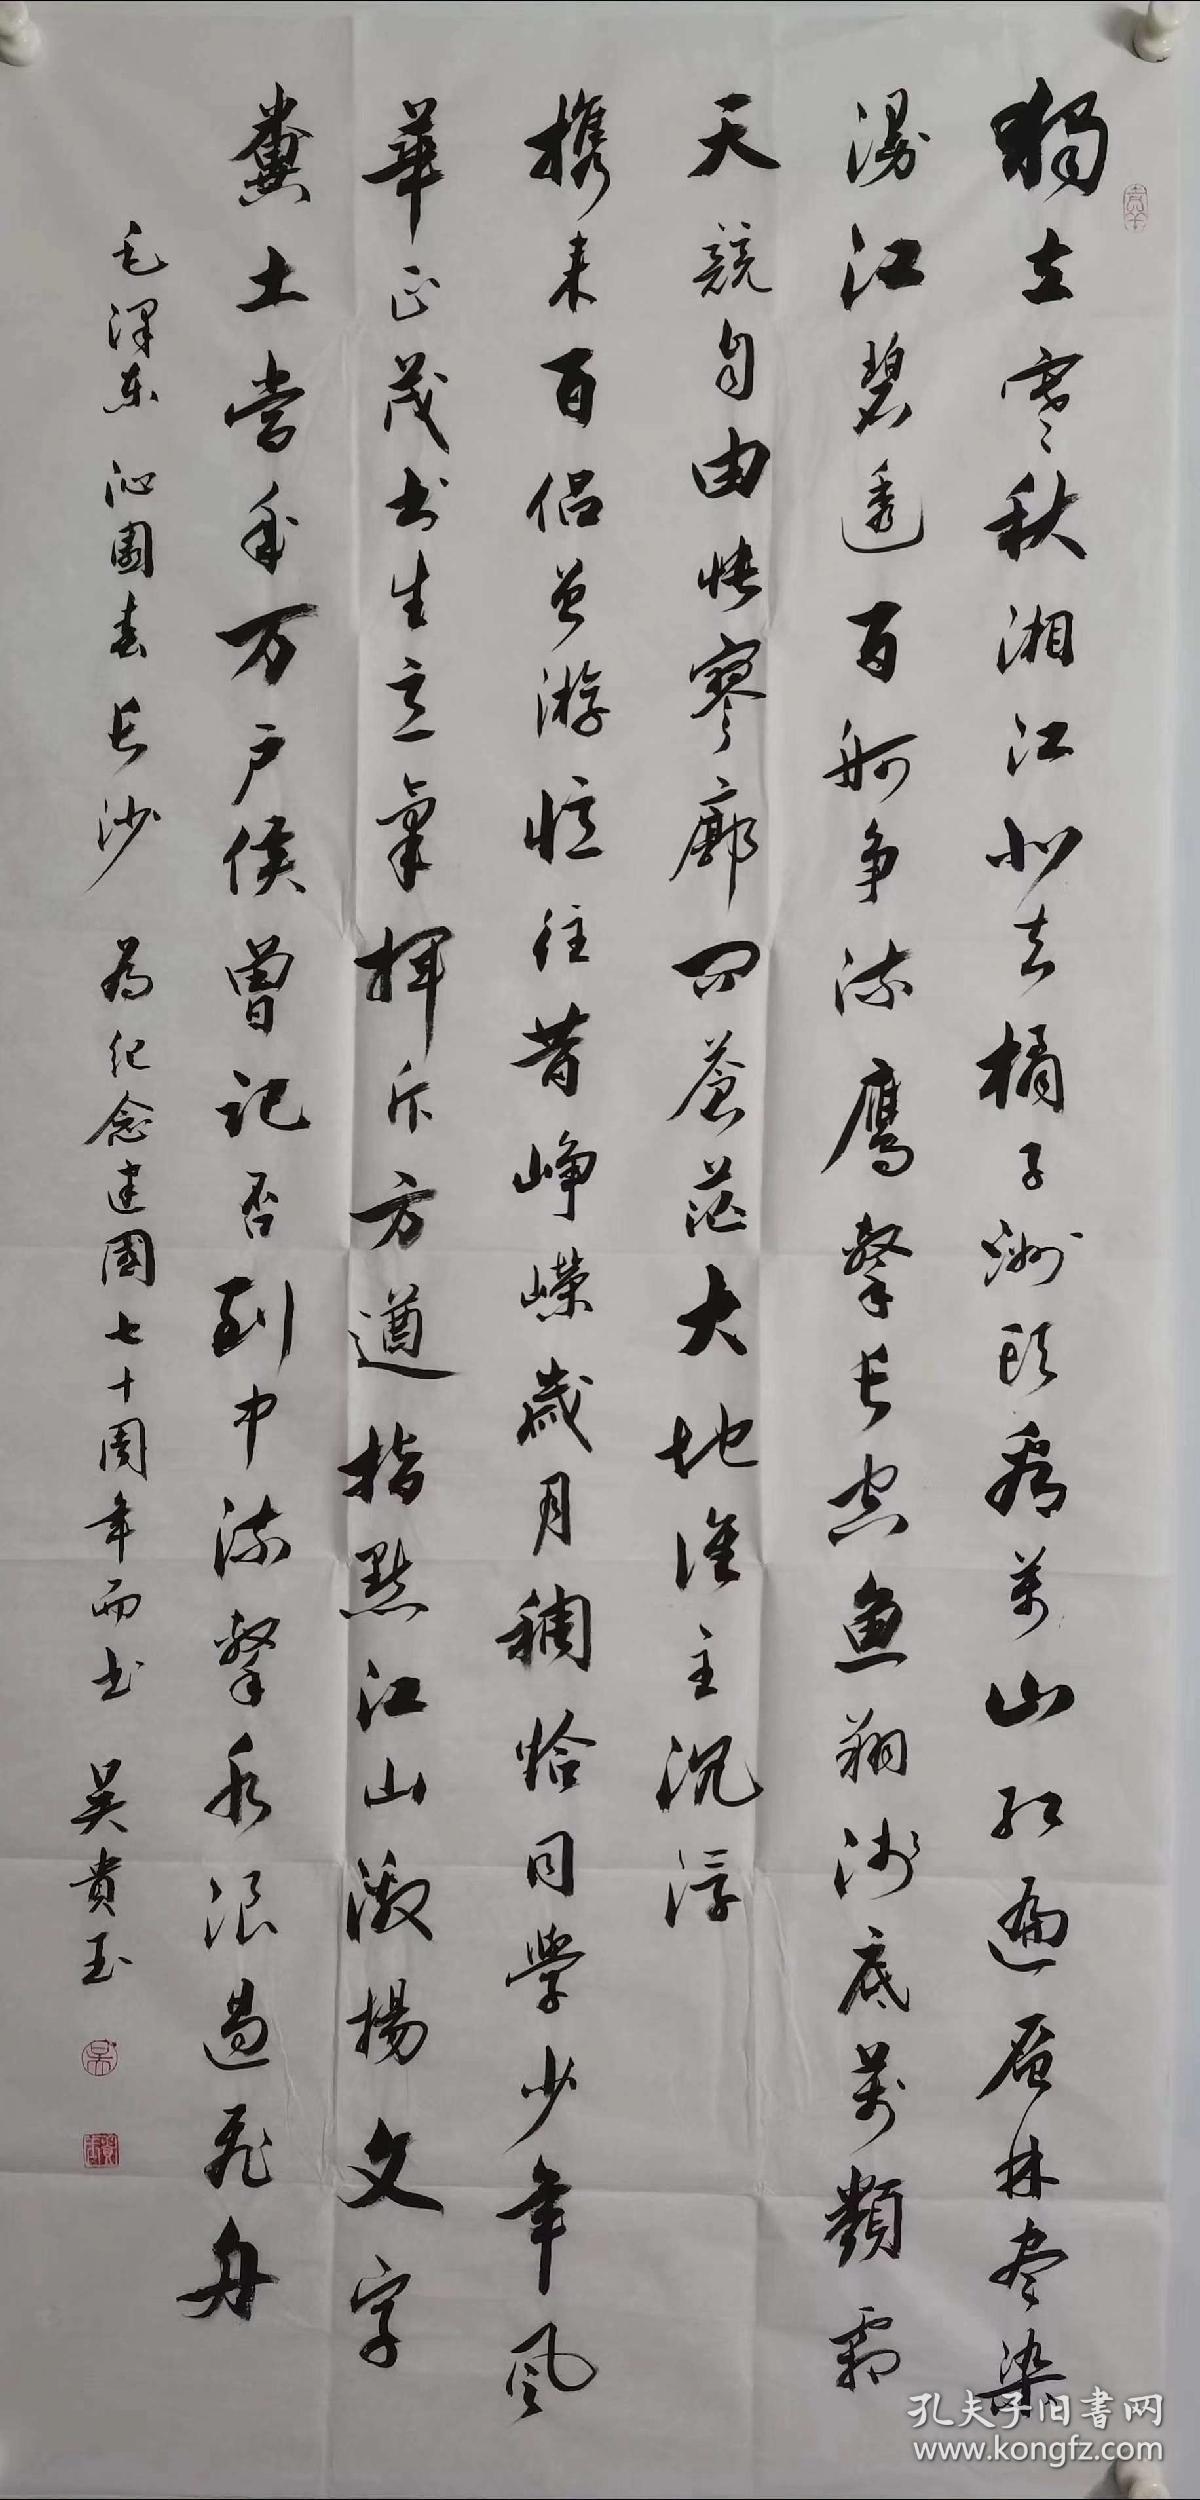 獨立寒秋湘江北去橘子洲头看萬山红遍层林尽染
漫江碧透百舸争流鹰擊长空鱼翔浅底萬類霜
天競自由悵寥廓问苍茫大地谁主沉浮
携来百侣曾游忆往昔峥嵘歲月稠恰同學少年风
華正茂书生意氣挥斥方遒指點江山激揚文字
糞土當年万户侯曾记否到中流擊水浪遏飞舟
毛泽东 沁園春 长沙 为纪念建國七十周年而书 吴貴玉
孔夫子旧书网
www.kongfz.com